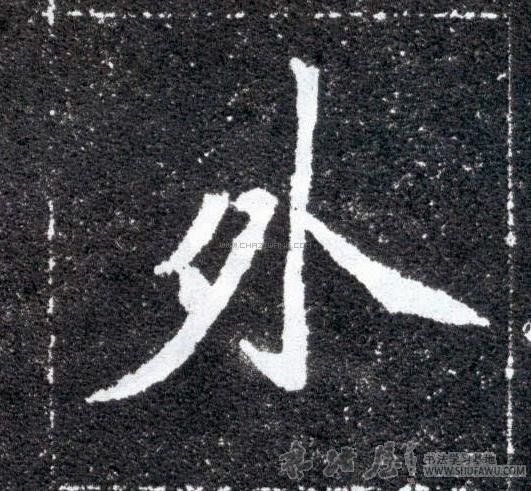 外
WWW.CHAZIWANG.COM
书法学习基地
WWW.SHUFAWU.COM